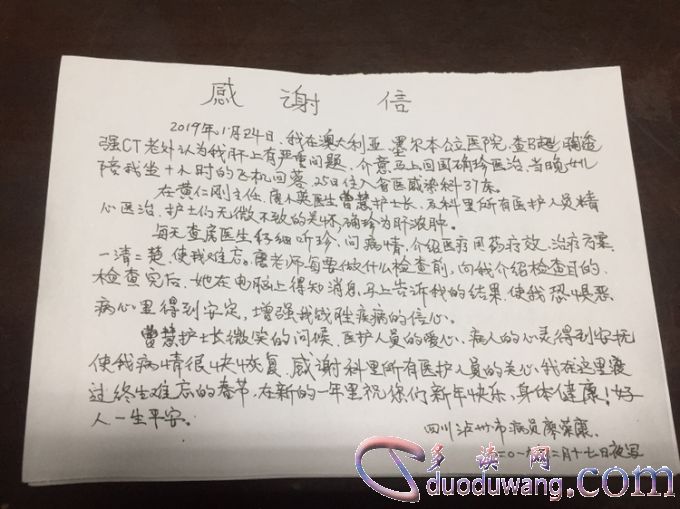 感谢信
2019年1月24日，我在澳大利亚墨尔本公立医院，查B超、胸透
强CT老外认为我肝上有严重问题，介意马上回国确珍医治，当晚女儿
陪我坐十小时的飞机回蓉，25日住入省医感染科37床。
在黄仁刚主任、医生曾慧护士长，及科里所有医护人员精
心医治，护士们无微不致的关怀，确珍为肝浓肿。
每天查房医生仔细听珍，问病情，介绍医疗用药疗效，治疗方案
一清二楚，使我难忘。唐老师每要做什么检查前，向我介绍检查目的，
检查完后，她在电脑上得知消息，马上告诉我的结果，使我恐惧恶
病心里得到安定，增强我战胜疾病的信心。
曾慧护士长微笑的问候，医护人员的爱心，病人的心灵得到安抚
使我病情很快恢复，感谢科里所有医护人员的关心，我在这里渡
过终生难忘的春节，在新的一年里祝你们新年快乐，身体健康！好
人一生平安。
四川泸州市病员廖荣康
二〇一九年二月十七日夜写
多读网
duoduwang.com